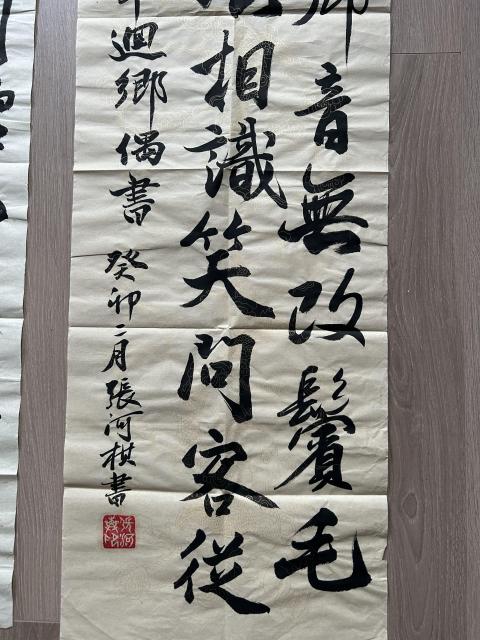 鄉音無改鬢毛
相識笑問客從
迴鄉偶書 癸卯二月張河棋書